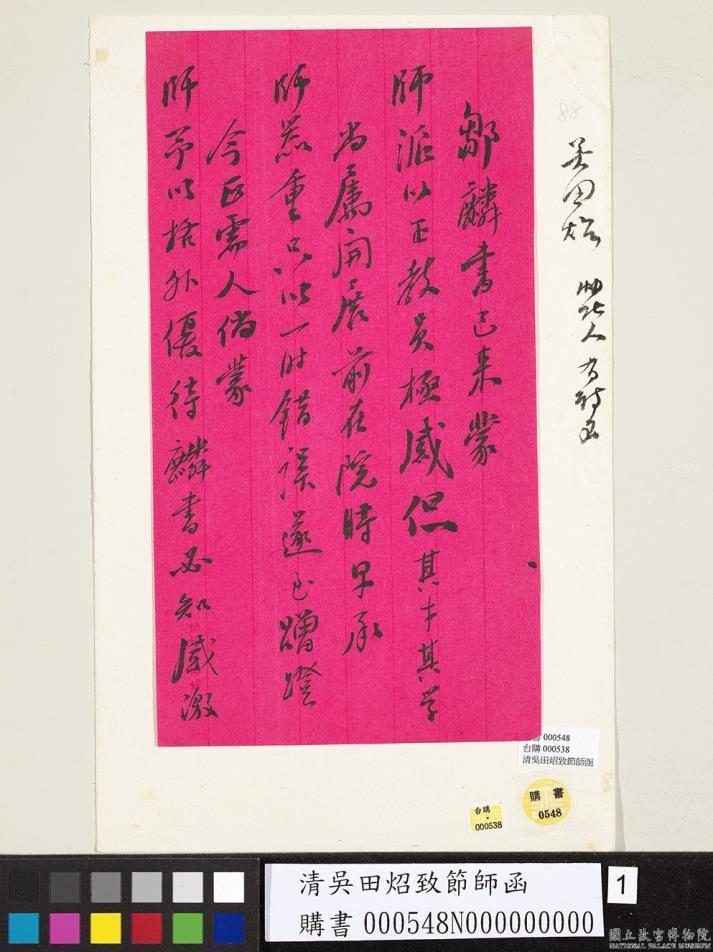 鄒麟書已來蒙
師派以正教員極感但其才其学
尚屬開展前在院時早承
師器重只以一时錯誤遂至蹭蹬
今正需人倘蒙
師予以格外優待麟書必知感激
88
吳田炤
此人有詩函
書 000548
台購 000538
清吳田炤致節師函
台購
000538
購書
0548
清吳田炤致節師函
購書 000548N000000000
1
國立故宮博物院
NATIONAL PALACE MUSEUM